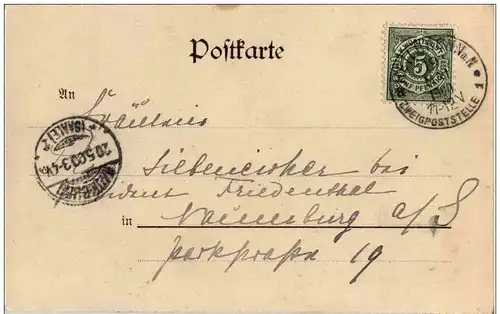 Postkarte
5
11-12 V
ZWEIGPOSTSTELLE 1
An Fräulein
(SAALE)
20.5.00 3-4 N
Siebeneicher bei
Friedenthal
in Naumburg a/S
Parkstraße 19